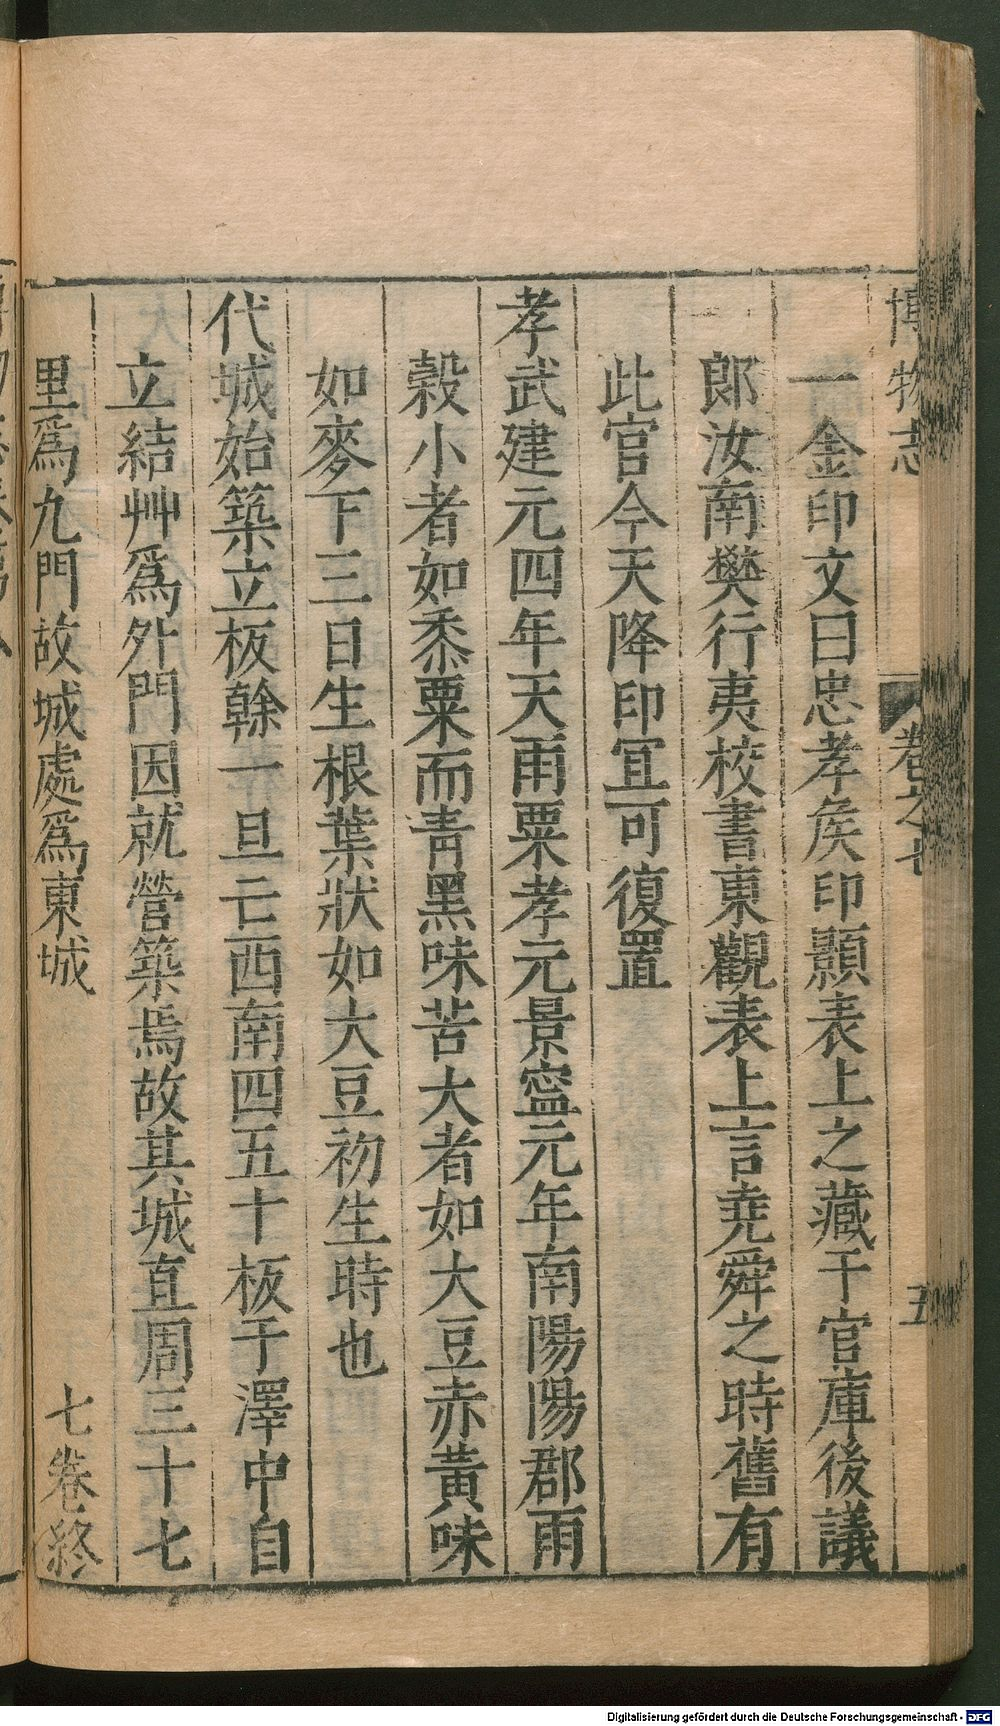 博物志 卷之七 五
一金印文曰忠孝矦印顥表上之藏于官庫後議
郞汝南樊行夷校書東觀表上言堯舜之時舊有
此官今天降印冝可復置
孝武建元四年天雨粟孝元景寧元年南陽陽郡雨
榖小者如黍粟而青黑味苦大者如大豆赤黃味
如麥下三日生根葉狀如大豆初生時也
代城始築立板幹一旦亡西南四五十板于澤中自
立結艸爲外門因就營築焉故其城直周三十七
里爲九門故城處爲東城
七卷終
Digitalisierung gefördert durch die Deutsche Forschungsgemeinschaft - DFG